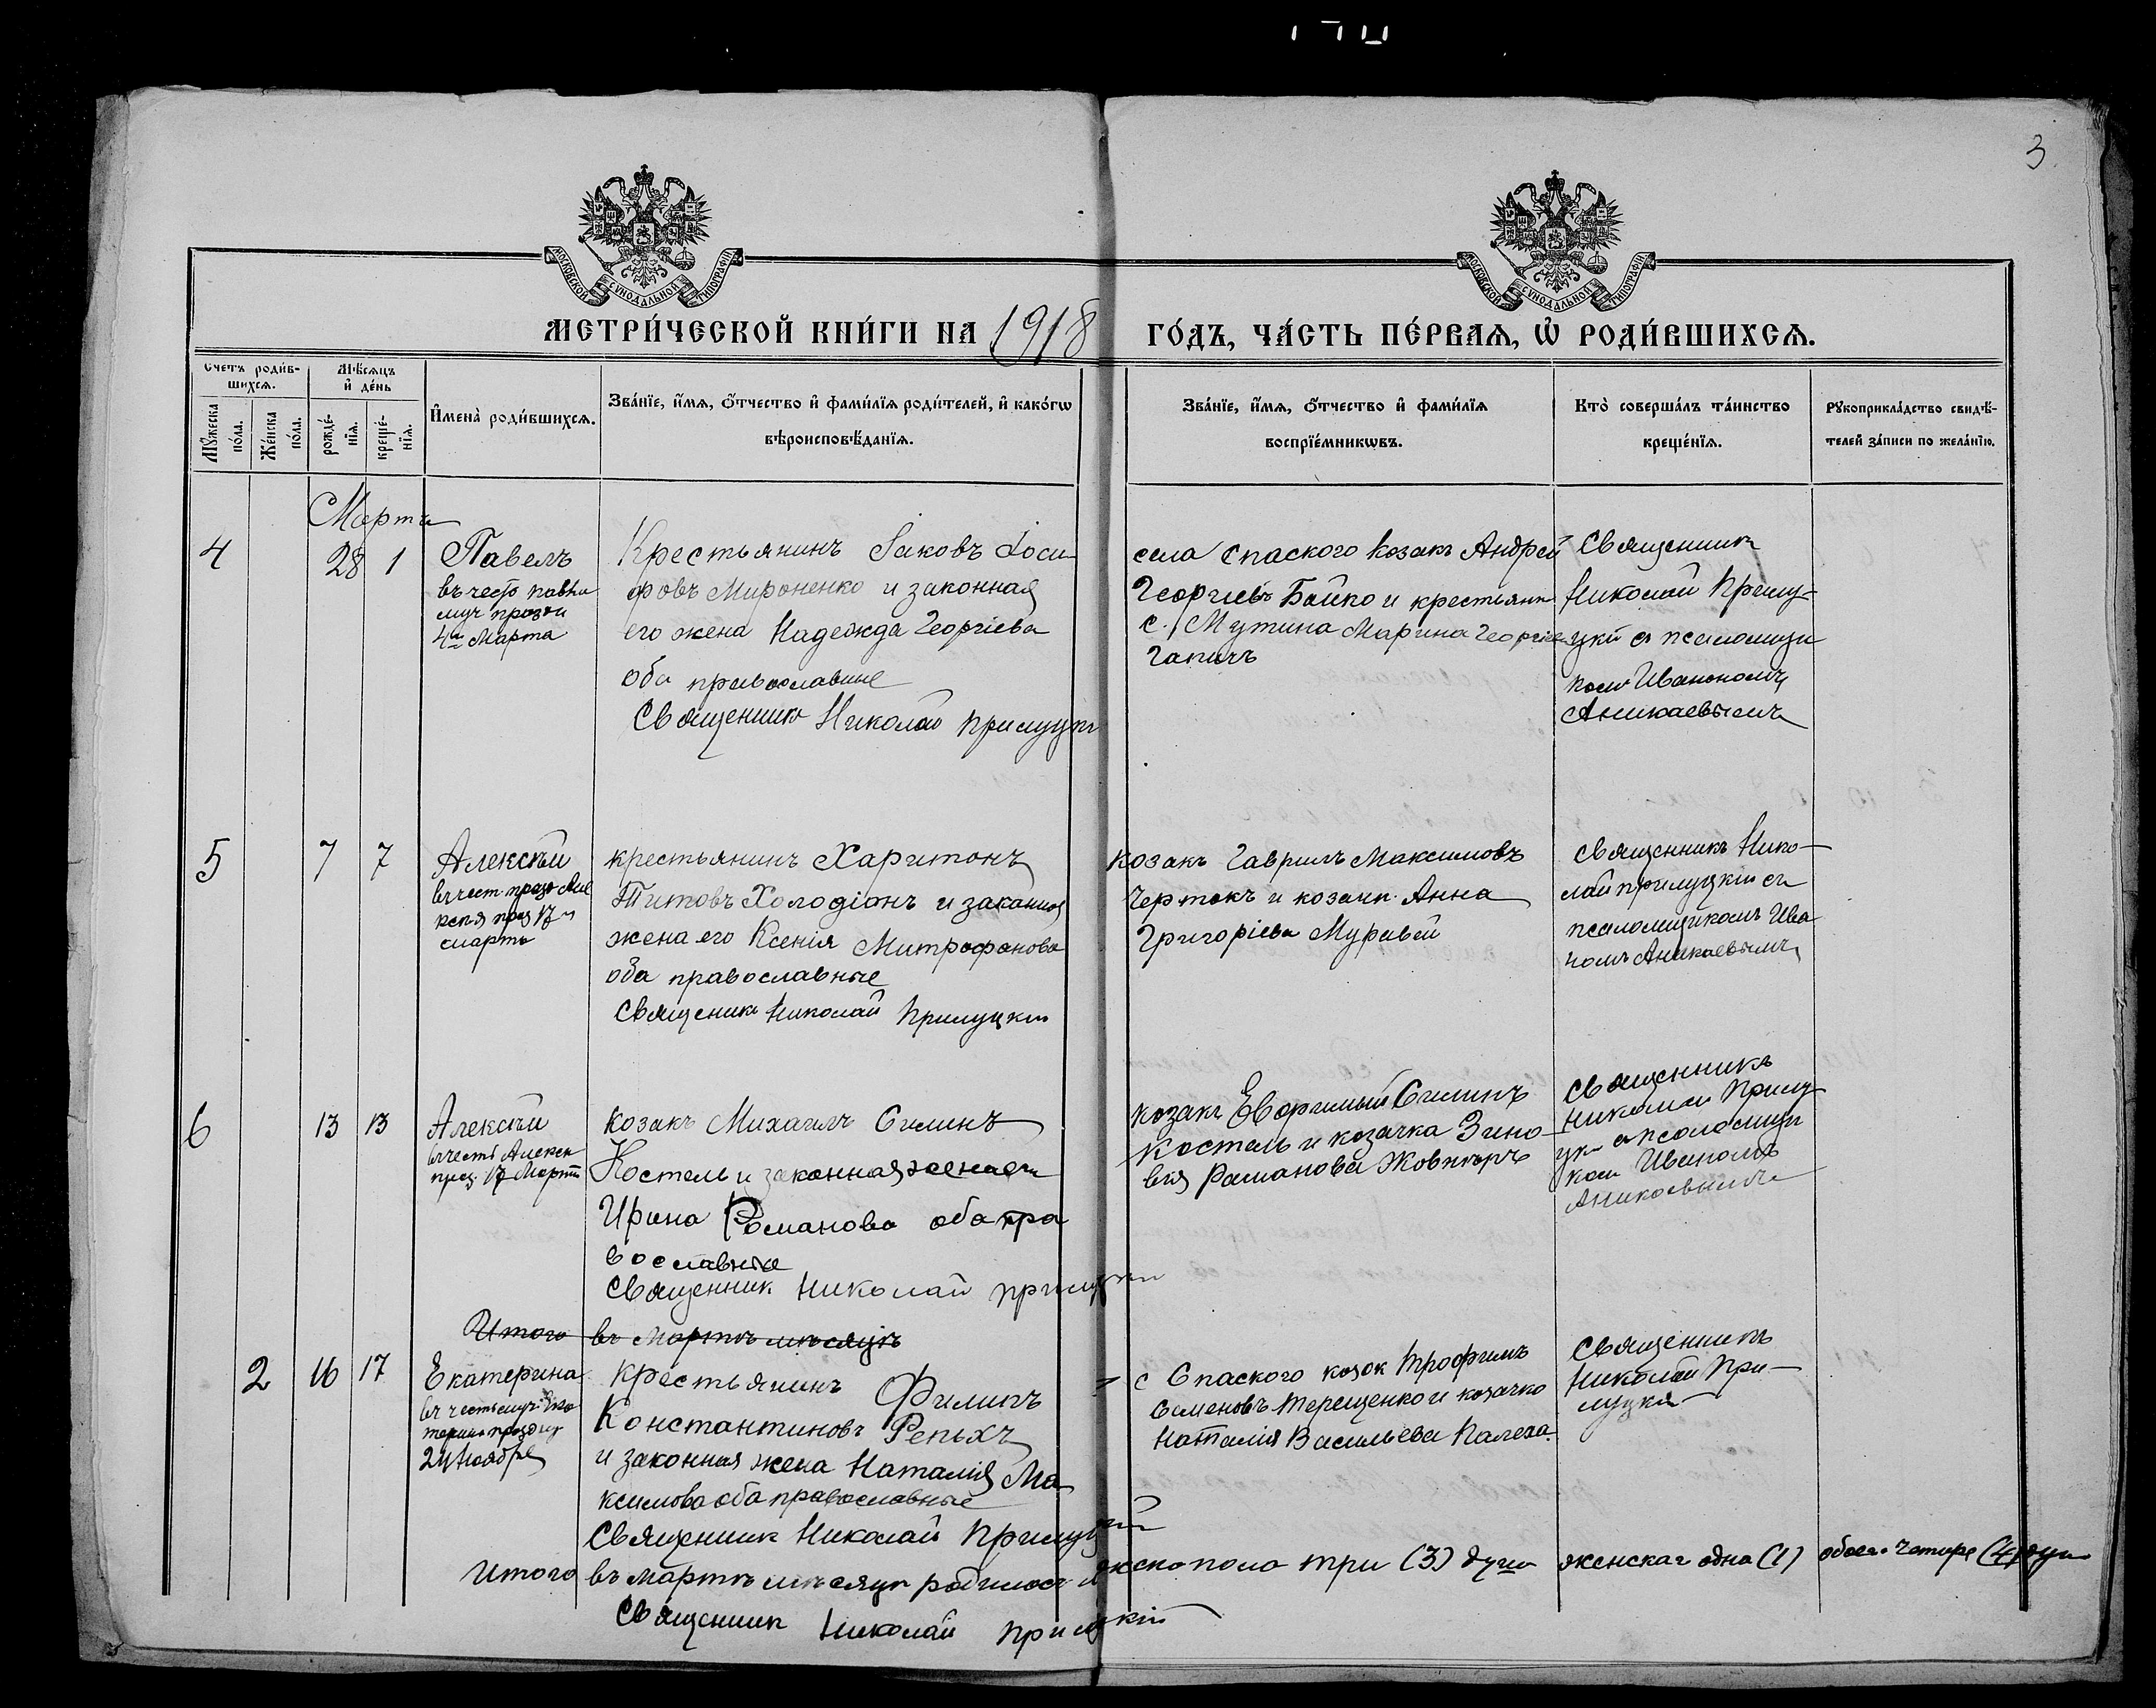 3
МОСКОВСКОЙ СѴНОДАЛЬНОЙ ТИПОГРАФІИ
МОСКОВСКОЙ СѴНОДАЛЬНОЙ ТИПОГРАФІИ
МЕТРИ́ЧЕСКОЙ КНИ́ГИ НА 1918 ГО́ДЪ, ЧА́СТЬ ПЕ́РВАѦ, Ѡ РОДИ́ВШИХСѦ.
Счетъ роди́в-
шихсѧ.
Мѣ́сѧцъ
и҆ де́нь
Мꙋ́жеска
по́ла.
Же́нска
по́ла.
рожде́-
нїѧ.
креще́-
нїѧ.
И҆мена̀ роди́вшихсѧ.
Зва́нїе, и҆́мѧ, ѻ҆́тчество и҆ фами́лїѧ роди́телей, и҆ како́гѡ
вѣроисповѣ́данїѧ.
Зва́нїе, и҆́мѧ, ѻ҆́тчество и҆ фами́лїѧ
воспрїе́мникѡвъ.
Кто̀ соверша́лъ та́инство
креще́нїѧ.
Рꙋкоприкла́дство свидѣ́-
телей за́писи по жела́нїю.
Мартъ
4 28 1
Павелъ
въ честь
муч
4го Марта
Крестьянинъ Іаковъ Іоси
фовъ Мироненко и законная
его жена Надежда Георгіева
оба православные
Священникъ Николай Прилуцкі
села Спаского козакъ Андрей
Георгіевъ Бойко и крестьянк
с. Мутина Марина Георгіев
Гапичъ
Священникъ
Николай Прилу-
цкій съ псаломщи
комъ Иваномъ
Аникаевымъ
5 7 7
Алексѣй
17
марта
крестьянинъ Харитонъ
Титовъ Холодіонъ и законная
жена его Ксенія Митрофанова
оба православные
Священикъ Николай Прилуцкій
козакъ Гаврилъ Максимовъ
Чертокъ и козачк. Анна
Григоріева Муравей
Священникъ Нико-
лай Прилуцкій съ
псаломщикомъ Ива
номъ Аникаевымъ
6 13 13
Алексѣй
въ честь Алексѣя
праз. 17 Марта
козакъ Михаилъ Силинъ
Костель и законная жена его
Ирина Романова оба пра
вославные
Священник Николай Прилуцкій
козакъ Евфимый Силинъ
Костель и козачка Зино-
вія Романова
Священникъ
Николай Прилу-
цкі съ псаломщи
ком Иваномъ
Аникаевымъ
Итого въ Мартѣ мѣсяцѣ
2 16 17
Екатерина
въ честь муч. Ека
терины праздну
24 Ноября
Крестьянинъ Филипъ
Константиновъ Репьхъ
и законная жена Наталія Ма
ксимова оба православные
Священник Николай Прилуцкій
с Спаского козак Трофимъ
Семеновъ Терещенко и козачка
Наталія Васильева Палеха
Священникъ
Николай При-
луцкій
Итого въ Мартѣ мѣсяцѣ родилось мужска пола три (3) душъ женскаг одна (1) обоего четыре (4) душ
Священник Николай Прилуцкій